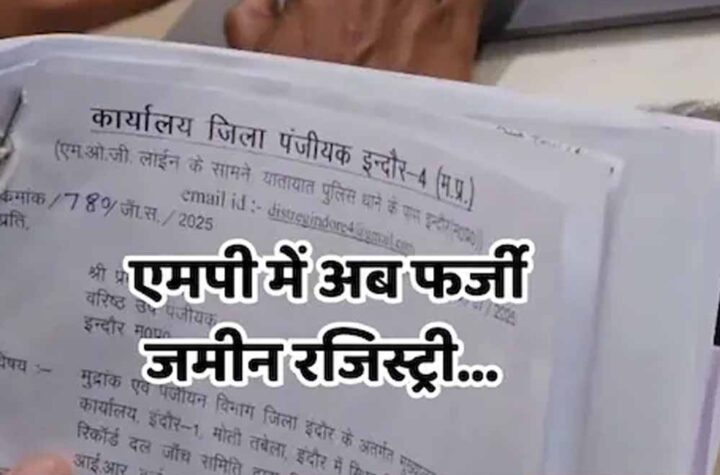 कार्यालय जिला पंजीयक इन्दौर-4 (म.प्र.)
(एम.ओ.जी. लाईन के सामने, यातायात पुलिस थाने के पास इन्दौर(म0प्र0))
क्रमांक/789/जॉ.स./2025
email id :- distregindore4@gmail.com
प्रति,
/2025
श्री
एमपी में अब फर्जी
वरिष्ठ उप पंजीयक
इन्दौर म0प्र0
जमीन रजिस्ट्री...
विषय :- मुद्रांक एवं पंजीयन विभाग जिला इंदौर के अंतर्गत
कार्यालय, इंदौर-1, मोती तबेला, इंदौर में
रिकॉर्ड दल जाँच समिति
आई.आर